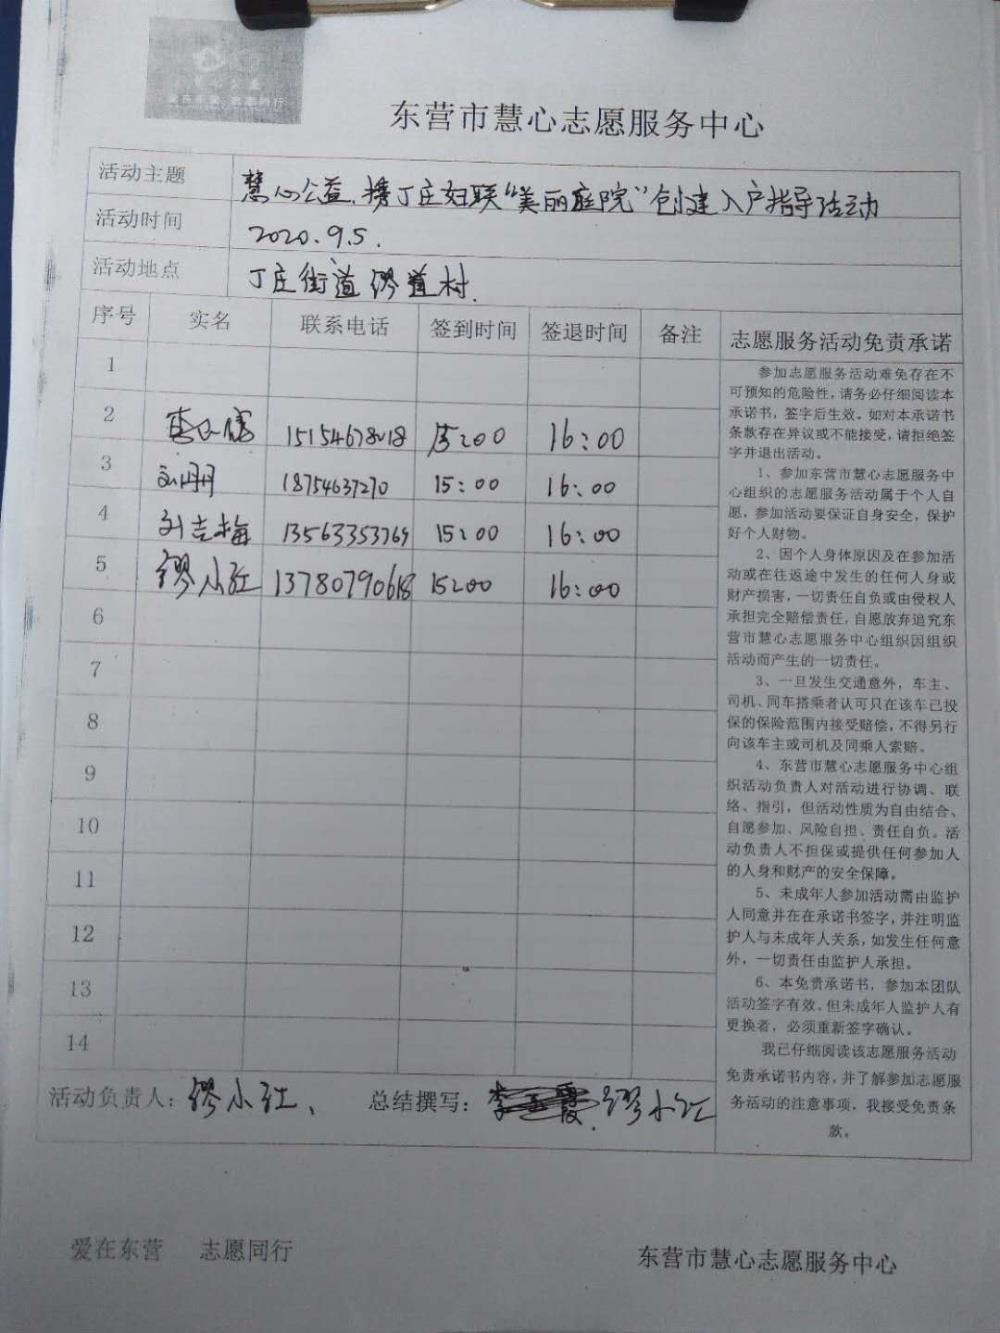 东营市慧心志愿服务中心
活动主题 慧心公益.携丁庄妇联“美丽庭院”创建入户指导活动
活动时间 2020.9.5.
活动地点 丁庄街道缪道村.
序号 实名 联系电话 签到时间 签退时间 备注 志愿服务活动免责承诺
1
2 15:00 16:00
3 刘丹丹 18754637270 15:00 16:00
4 刘吉梅 13563353769 15:00 16:00
5 缪小红 13780790618 15:00 16:00
6
7
8
9
10
11
12
13
14
参加志愿服务活动难免存在不
可预知的危险性,请务必仔细阅读本
承诺书,签字后生效。如对本承诺书
条款存在异议或不能接受,请拒绝签
字并退出活动。
1、参加东营市慧心志愿服务中
心组织的志愿服务活动属于个人自
愿,参加活动要保证自身安全,保护
好个人财物。
2、因个人身体原因及在参加活
动或在往返途中发生的任何人身或
财产损害,一切责任自负或由侵权人
承担完全赔偿责任,自愿放弃追究东
营市慧心志愿服务中心组织因组织
活动而产生的一切责任。
3、一旦发生交通意外,车主、
司机、同车搭乘者认可只在该车已投
保的保险范围内接受赔偿,不得另行
向该车主或司机及同乘人索赔。
4、东营市慧心志愿服务中心组
织活动负责人对活动进行协调、联
络、指引,但活动性质为自由结合、
自愿参加、风险自担、责任自负。活
动负责人不担保或提供任何参加人
的人身和财产的安全保障。
5、未成年人参加活动需由监护
人同意并在在承诺书签字,并注明监
护人与未成年人关系,如发生任何意
外,一切责任由监护人承担。
6、本免责承诺书,参加本团队
活动签字有效,但未成年人监护人有
更换者,必须重新签字确认。
我已仔细阅读该志愿服务活动
免责承诺书内容,并了解参加志愿服
务活动的注意事项,我接受免责条
款。
活动负责人:缪小红、 总结撰写: 缪小红
爱在东营 志愿同行 东营市慧心志愿服务中心